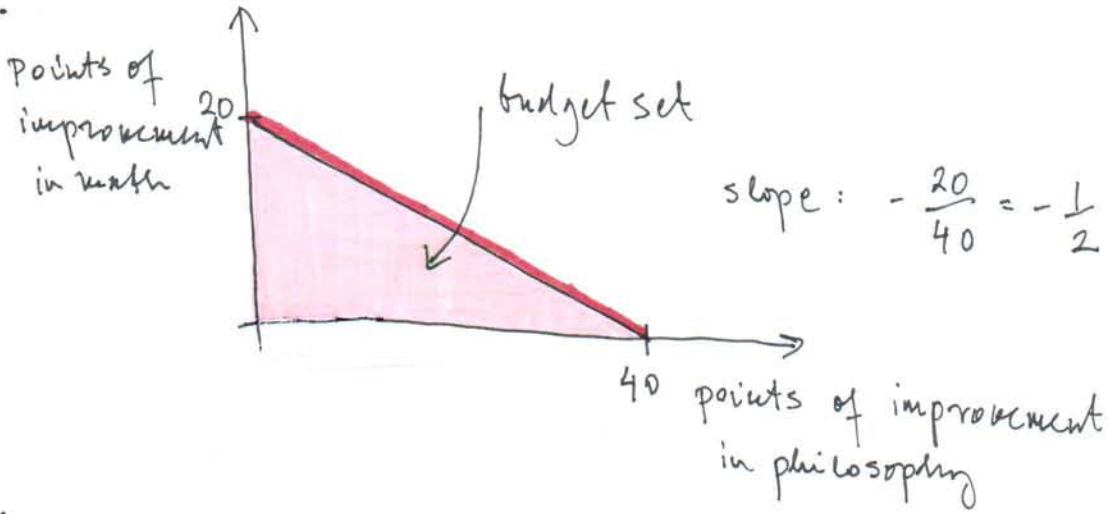 points of
improvement
in math
20
budget set
slope: - 20/40 = - 1/2
40
points of improvement
in philosophy